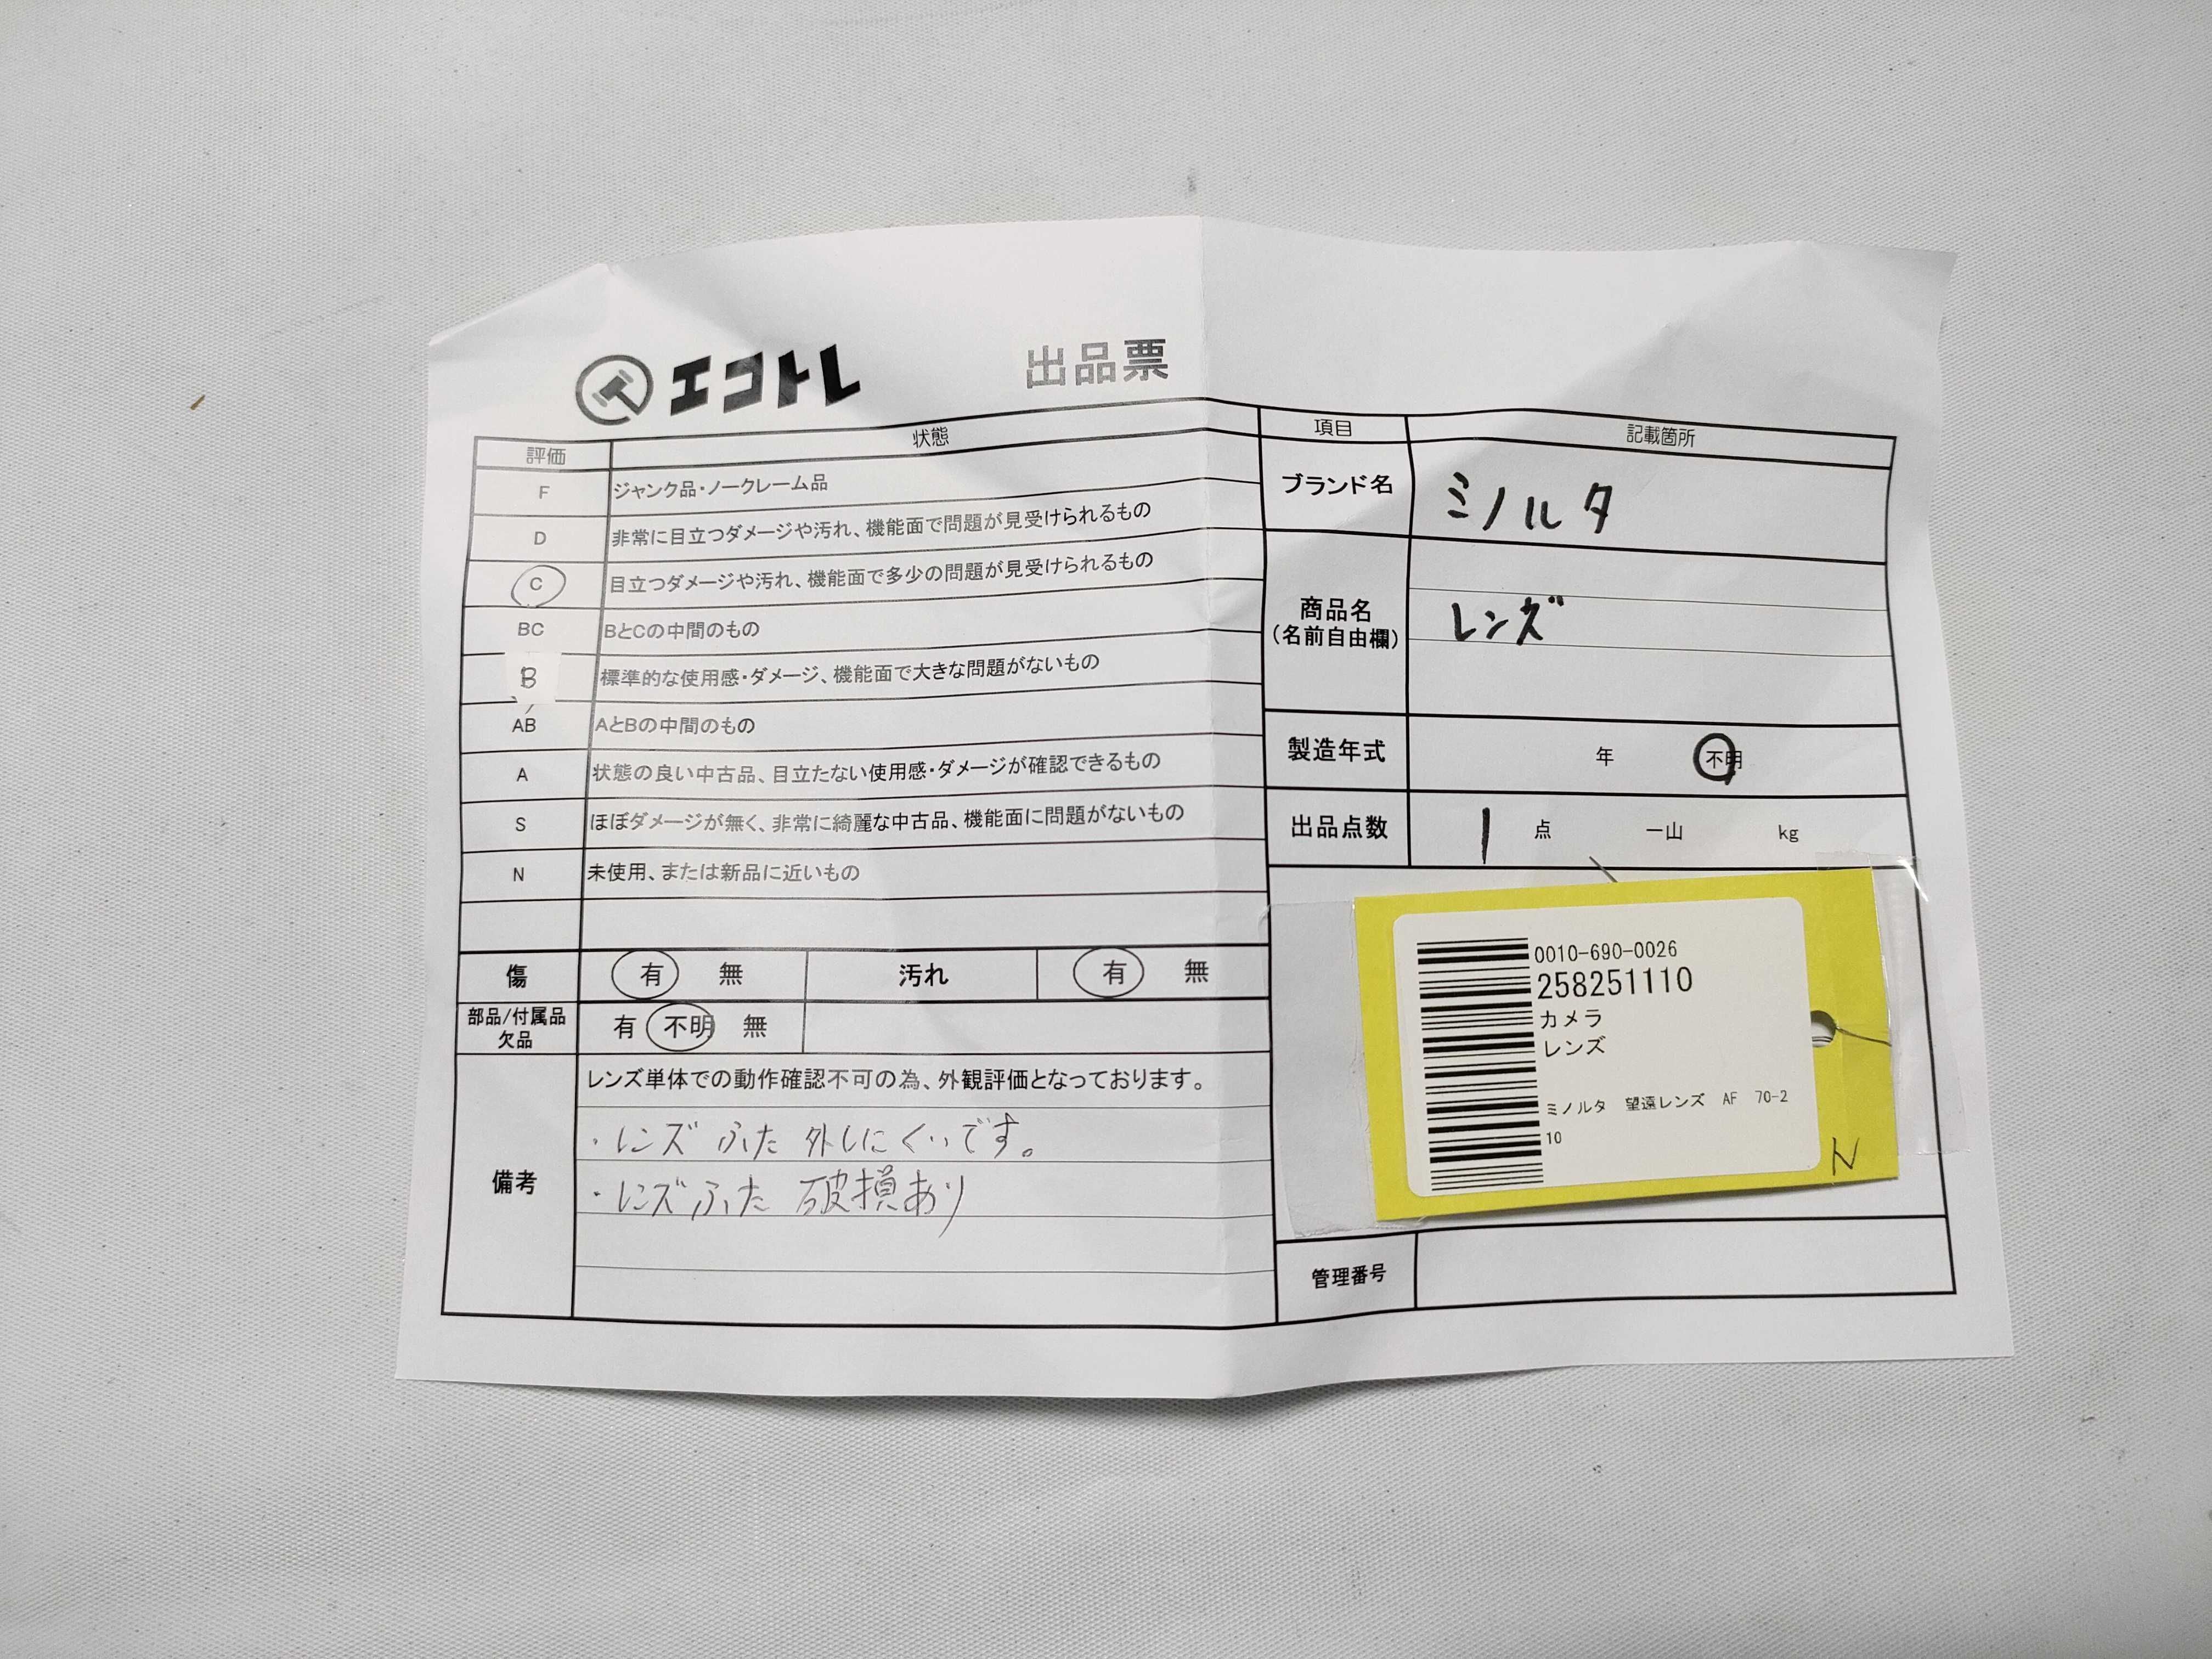 エコトレ 出品票
評価 状態
F ジャンク品・ノークレーム品
D 非常に目立つダメージや汚れ、機能面で問題が見受けられるもの
C 目立つダメージや汚れ、機能面で多少の問題が見受けられるもの
BC BとCの中間のもの
B 標準的な使用感・ダメージ、機能面で大きな問題がないもの
AB AとBの中間のもの
A 状態の良い中古品、目立たない使用感・ダメージが確認できるもの
S ほぼダメージが無く、非常に綺麗な中古品、機能面に問題がないもの
N 未使用、または新品に近いもの
傷 有 無 汚れ 有 無
部品/付属品
欠品 有 不明 無
備考
レンズ単体での動作確認不可の為、外観評価となっております。
・レンズふた 外しにくいです。
・レンズふた 破損あり
項目 記載箇所
ブランド名 ミノルタ
商品名
(名前自由欄)
レンズ
製造年式 年 不明
出品点数 1 点 一山 kg
0010-690-0026
258251110
カメラ
レンズ
ミノルタ 望遠レンズ AF 70-2
10
N
管理番号